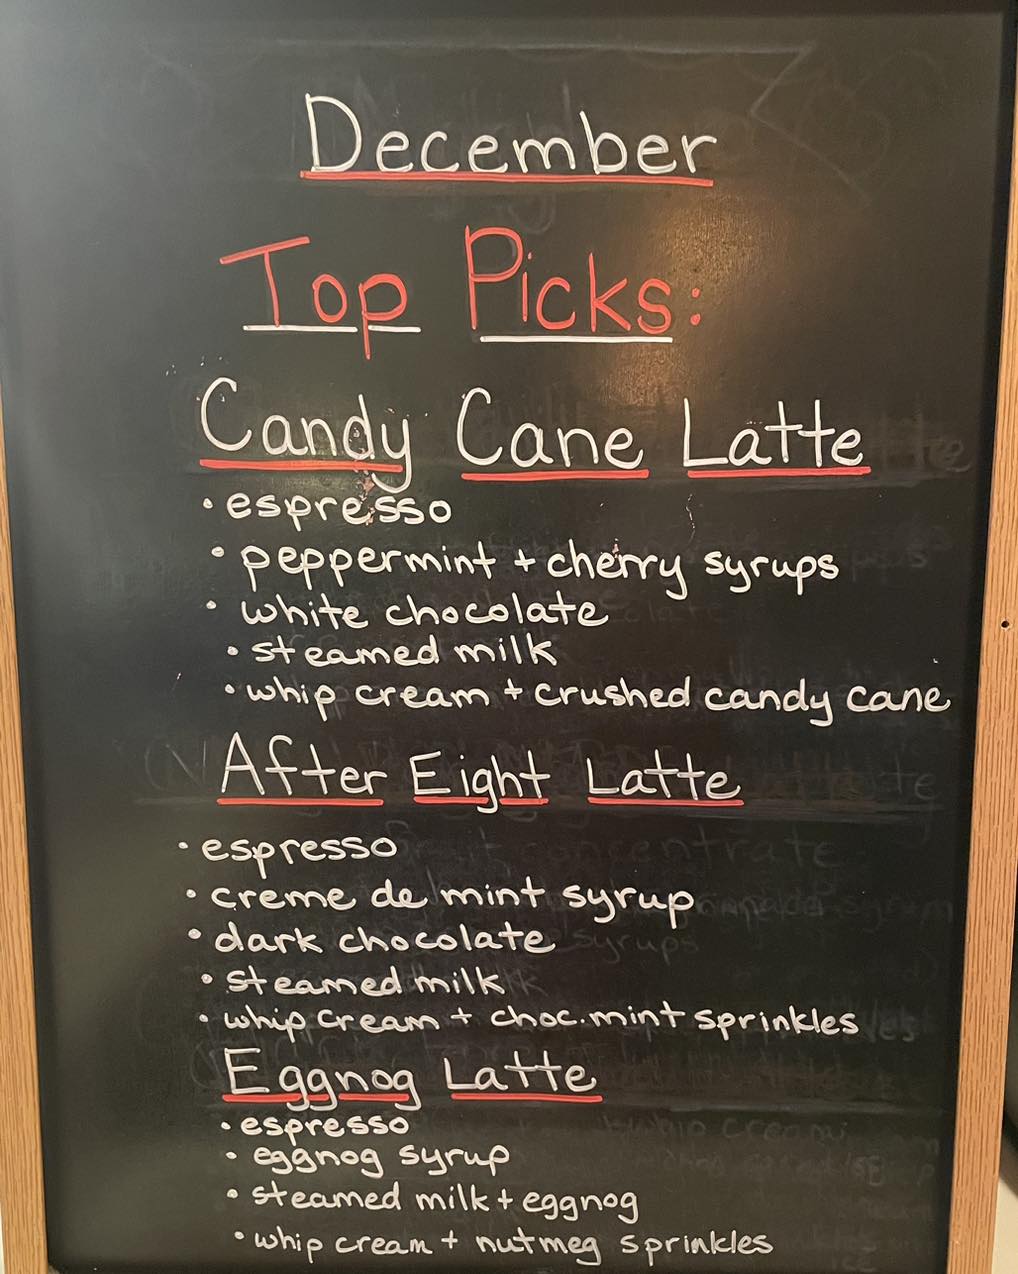 December
Top Picks:
Candy Cane Latte
• espresso
• peppermint + cherry syrups
• white chocolate
• steamed milk
• whip cream + crushed candy cane
After Eight Latte
• espresso
• creme de mint syrup
• dark chocolate
• steamed milk
• whip cream + choc. mint sprinkles
Eggnog Latte
• espresso
• eggnog syrup
• steamed milk + eggnog
• whip cream + nutmeg sprinkles